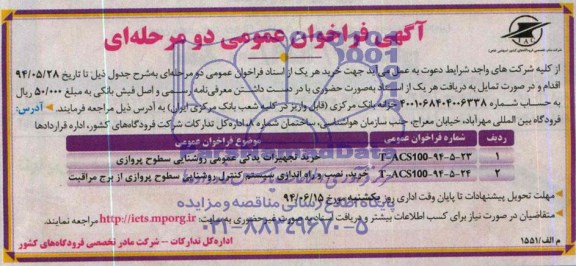 شرکت مادر تخصصی فرودگاههای کشور (سهامی خاص)
آگهی فراخوان عمومی دو مرحله‌ای
از کلیه شرکت های واجد شرایط دعوت به عمل می‌آید جهت خرید هر یک از اسناد فراخوان عمومی دو مرحله‌ای به‌شرح جدول ذیل تا تاریخ ۹۴/۰۵/۲۸
اقدام و در صورت تمایل به دریافت هر یک از اسناد به‌صورت حضوری با در دست داشتن معرفی‌نامه رسمی و اصل فیش بانکی به مبلغ ۵۰/۰۰۰ ریال
به حساب شماره ۴۰۰۱۰۶۸۴۰۴۰۰۶۳۳۸ خزانه بانک مرکزی (قابل واریز در کلیه شعب بانک مرکزی ایران) به آدرس ذیل مراجعه فرمایند. آدرس:
فرودگاه بین المللی مهرآباد، خیابان معراج، جنب سازمان هواشناسی، ساختمان شماره ۸ اداره‌کل تدارکات شرکت فرودگاه‌های کشور، اداره قراردادها
ردیف شماره فراخوان عمومی موضوع فراخوان عمومی
۱ T-ACS100-۹۴-۵-۲۳ خرید تجهیزات یدکی عمومی روشنایی سطوح پروازی
۲ T-ACS100-۹۴-۵-۲۴ خرید، نصب و راه اندازی سیستم کنترل روشنایی سطوح پروازی از برج مراقبت
مهلت تحویل پیشنهادات تا پایان وقت اداری روز یکشنبه مورخ ۹۴/۰۶/۱۵
پایگاه اطلاع رسانی مناقصه و مزایده
متقاضیان در صورت نیاز برای کسب اطلاعات بیشتر و دریافت اسناد به صورت غیرحضوری به سایت: http://iets.mporg.ir مراجعه نمایند.
۰۲۱-۸۸۳۴۹۶۷۰-۵
اداره‌کل تدارکات – شرکت مادر تخصصی فرودگاه‌های کشور
م الف/۱۵۵۱